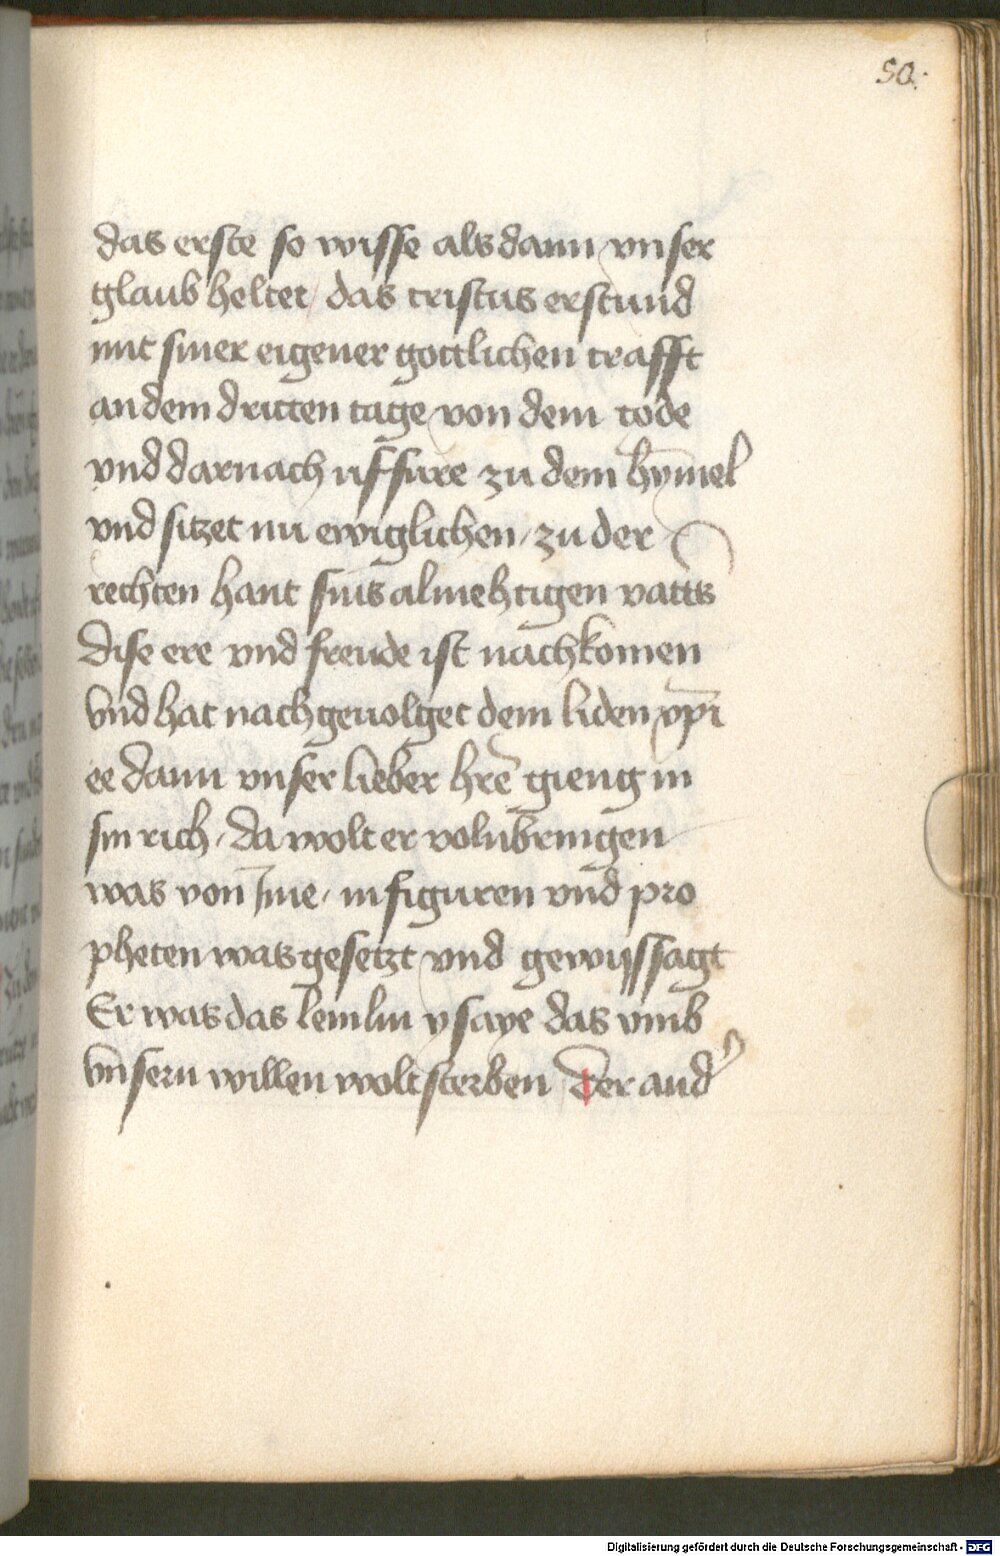 50.
das erste so wisse als dann vnser
glaub heltet / das cristus erstund
mit siner eigener gottlichen crafft
an dem dritten tage / von dem tode
vnd darnach uffure zu dem hȳmel
vnd sitzet nu ewiglichen / zu der
rechten hant sins almehtigen vatts
dise ere vnd freude ist nachkomen
Vnd hat nachgeuolget dem liden xp̄i
ee dann vnser lieber hrē gieng in
sin rich / da wolt er volnbringen
was von Ime / in figuren vnd pro
pheten was gesetzt vnd gewijssagt
Er was das lemlin ysaye das vmb
Vnsern willen wolt sterben / Der and
Digitalisierung gefördert durch die Deutsche Forschungsgemeinschaft - DFG